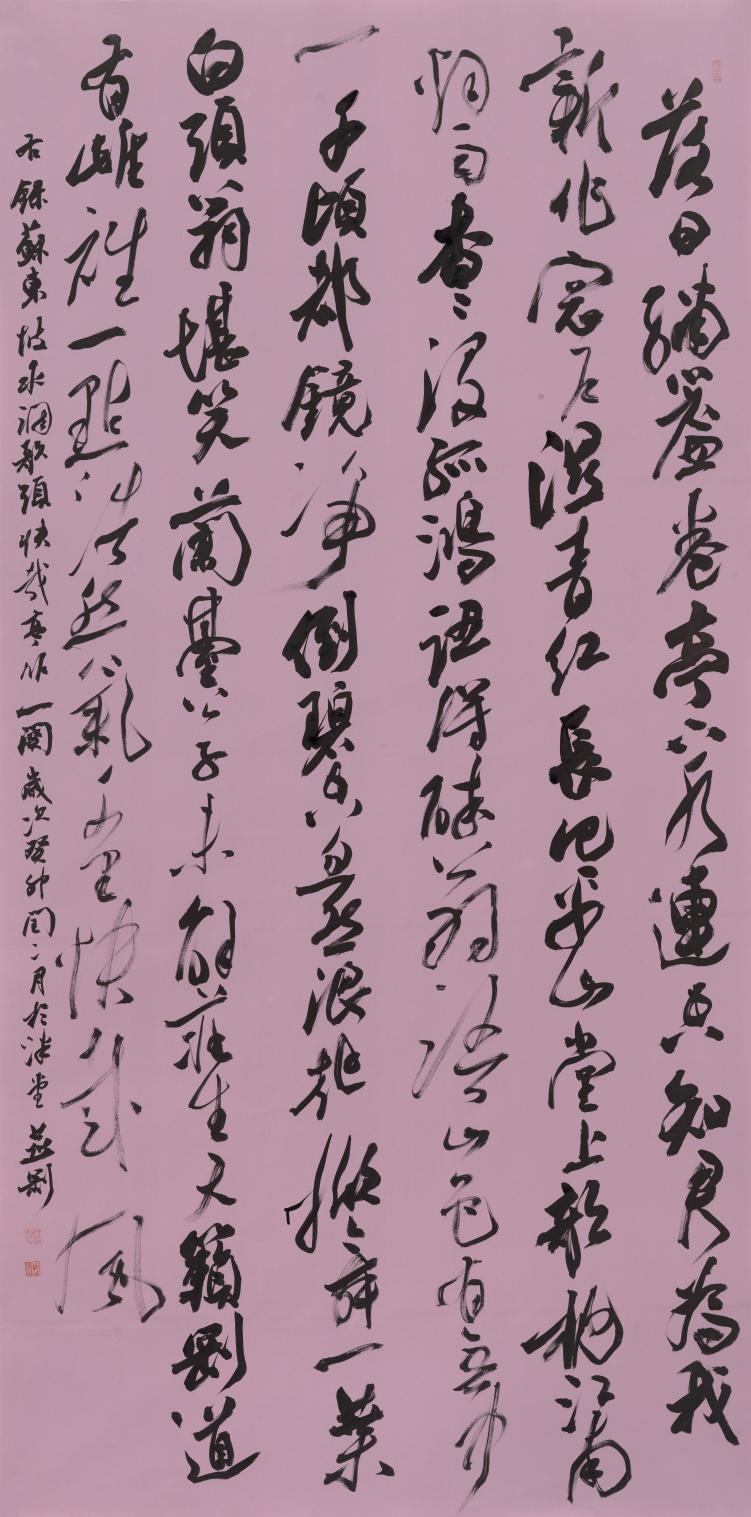 落日繡簾卷亭下水連空知君為我
新作窓户濕青紅長記平山堂上欹枕江南
烟雨杳〻沒孤鴻認得醉翁語山色有無中
一千頃都鏡淨倒碧峯忽然浪起掀舞一葉
白頭翁堪笑蘭臺公子未解莊生天籟剛道
有雌雄一點浩然氣千里快哉風
右錄蘇東坡水調歌頭快哉亭作一闋歲次癸卯閏二月於津堂燕剛